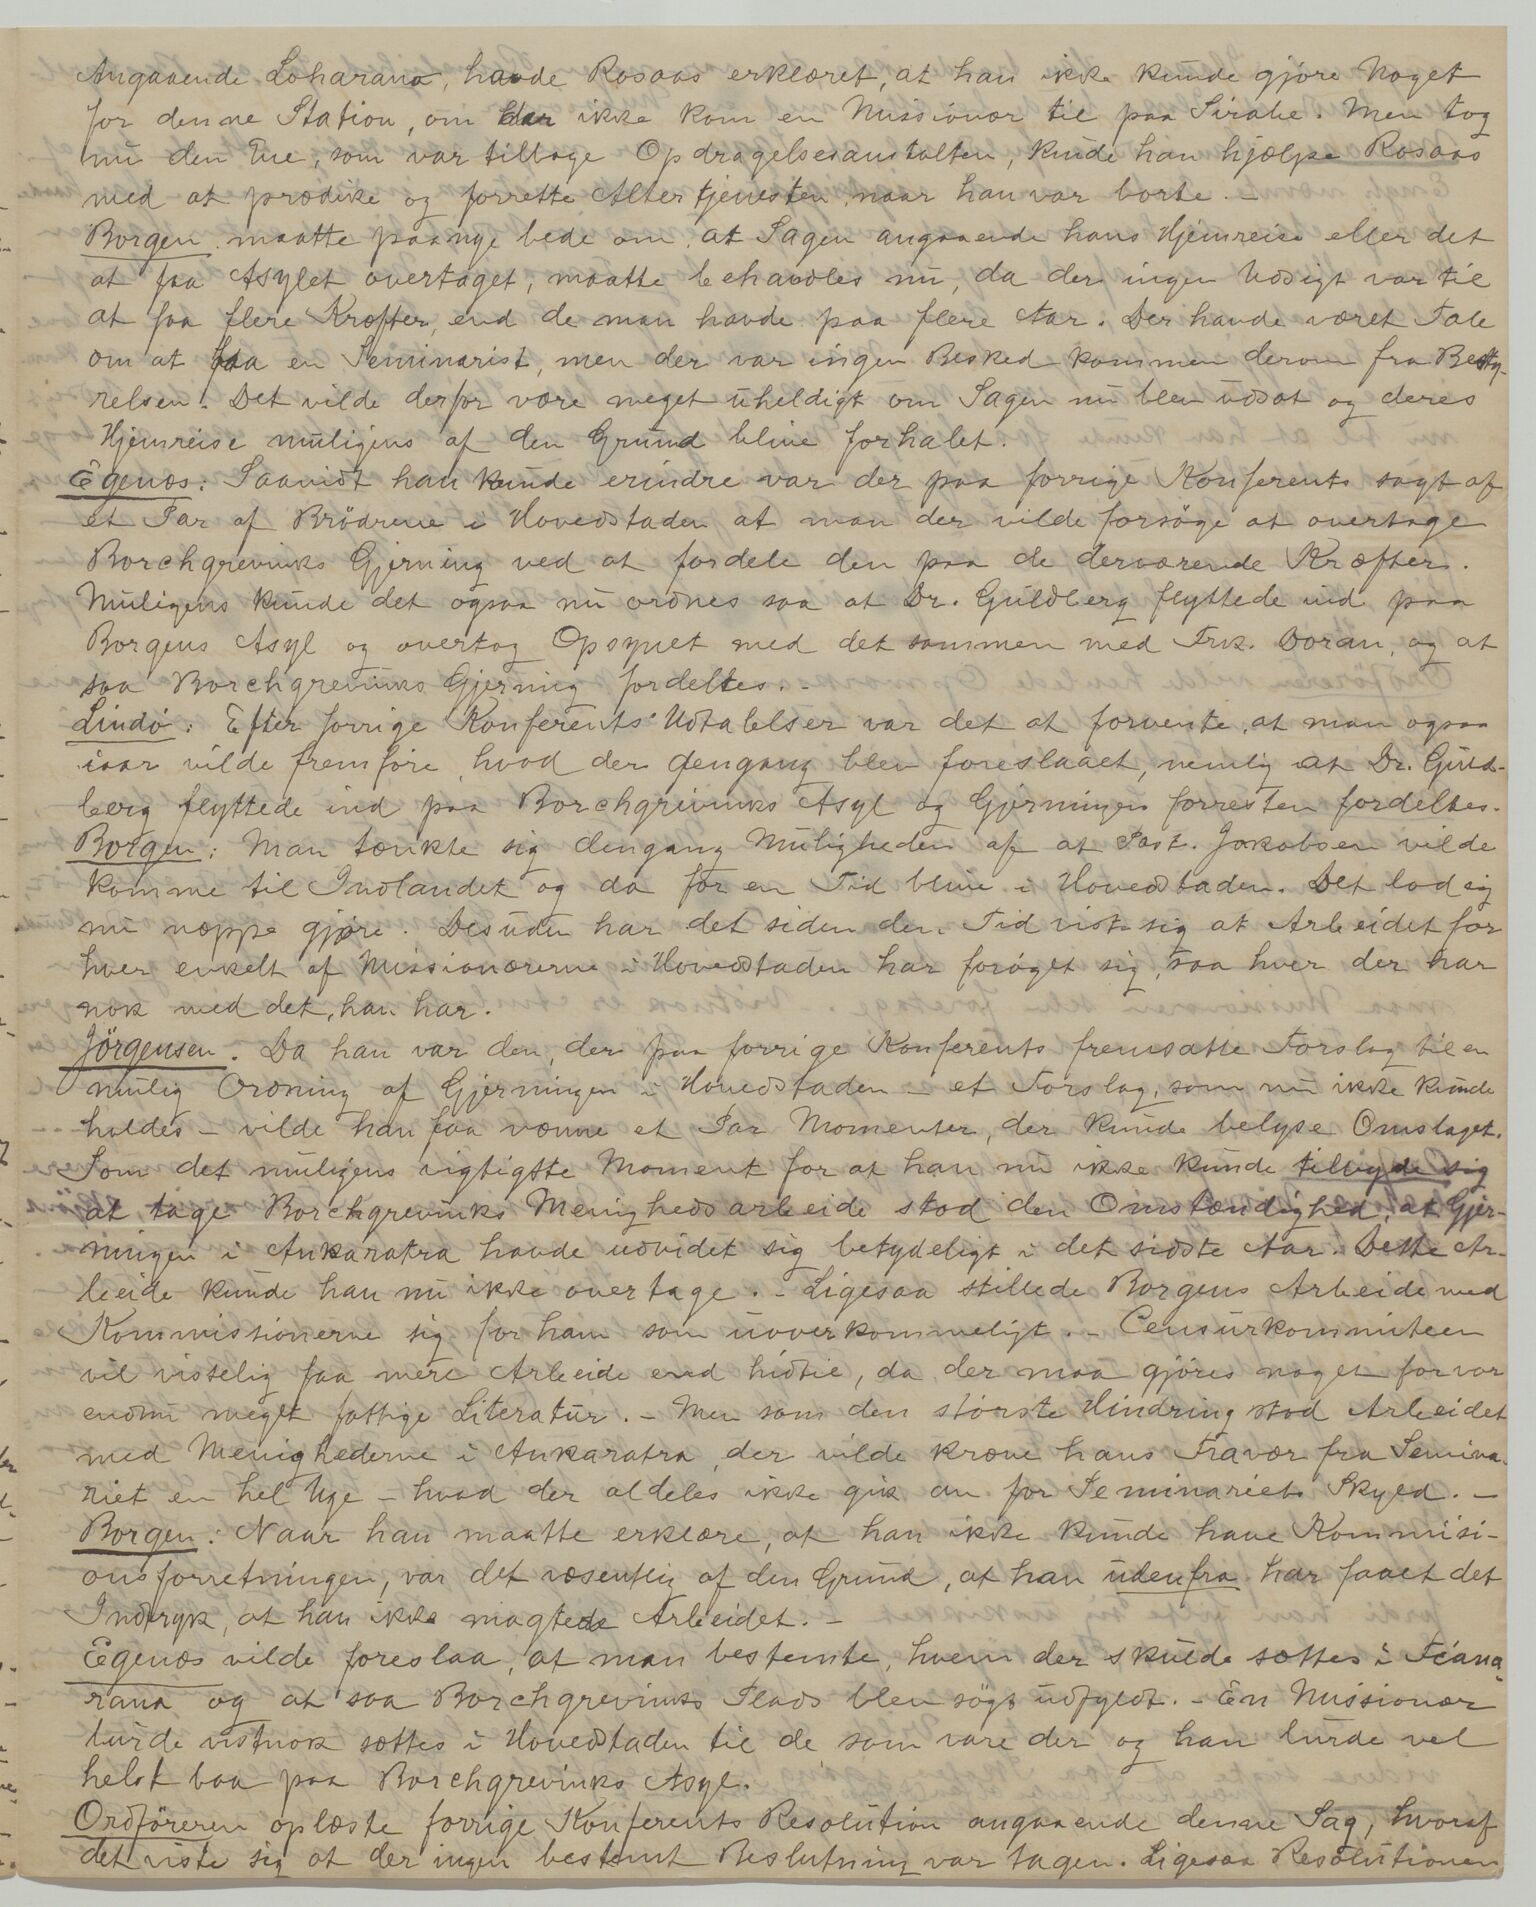 Angaaende Loharano, havde Rosaas erklæret, at han ikke kunde gjøre Noget
for denne Station, om der ikke kom en Missionær til paa Sirabe. Men tog
nu den Ene, som var tilbage Opdragelsesanstalten, kunde han hjælpe Rosaas
med at prædike og forrette Altertjenesten, naar han var borte. –
Borgen maatte paanye bede om, at Sagen angaaende hans Hjemreise eller det
at faa Asylet overtaget, maatte behandles nu, da der ingen Udsigt var til
at faa flere Kræfter, end de man havde paa flere Aar. Der havde været Tale
om at faa en Seminarist, men der var ingen Besked kommen derom fra Besty-
relsen. Det vilde derfor være meget uheldigt om Sagen nu blev udsat og deres
Hjemreise muligens af den Grund blive forhalet.
Egenæs: Saavidt han kunde erindre var der paa forrige Konferents sagt af
et Par af Brödrene i Hovedstaden at man der vilde forsöge at overtage
Borchgrevinks Gjerning ved at fordele den paa de derværende Kræfter.
Muligens kunde det ogsaa nu ordnes saa at Dr. Guldberg flyttede ind paa
Borgens Asyl og overtog Opsynet med det sammen med Frk. Doran, og at
saa Borchgrevinks Gjerning fordeltes. –
Lindö: Efter forrige Konferents' Udtalelser var det at forvente, at man ogsaa
iaar vilde fremföre, hvad der dengang blev foreslaaet, nemlig at Dr. Guld-
berg flyttede ind paa Borchgrevinks Asyl og Gjerningen forresten fordeltes.
Borgen: Man tænkte sig dengang Muligheden af at Past. Jakobsen vilde
komme til Indlandet og da for en Tid blive i Hovedstaden. Det lod sig
nu neppe gjøre. Desuden har det siden den Tid vist sig at Arbeidet for
hver enkelt af Missionærerne i Hovedstaden har forøget sig, saa hver der har
nok med det, han har.
Jörgensen. Da han var den, der paa forrige Konferents fremsatte Forslag til en
mulig Ordning af Gjerningen i Hovedstaden – et Forslag, som nu ikke kunde
holdes – vilde han faa nævne et Par Momenter, der kunde belyse Omslaget.
Som det muligens vigtigste Moment for at han nu ikke kunde tilbyde sig
at tage Borchgrevinks Menighedsarbeide stod den Omstændighed, at Gjer-
ningen i Ankaratra havde udvidet sig betydeligt i det sidste Aar. Dette Ar-
beide kunde han nu ikke overtage. – Ligesaa stillede Borgens Arbeide med
Kommissionerne sig for ham som uoverkommeligt. – Censurkommiteen
vil visselig faa mere Arbeide end hidtil, da der maa gjöres noget for vor
endnu meget fattige Literatur. – Men som den störste Hindring stod Arbeidet
med Menighederne i Ankaratra, der vilde kræve hans Fravær fra Semina-
riet en hel Uge – hvad der aldeles ikke gik an for Seminariets Skyld. –
Borgen: Naar han maatte erklære, at han ikke kunde have Kommisi-
onsforretningen, var det væsentlig af den Grund, at han udenfra har faaet det
Indtryk, at han ikke magtede Arbeidet. –
Egenæs vilde foreslaa, at man bestemte, hvem der skulde sættes i Fiana-
rana og at saa Borchgrevinks Plads blev sögt udfyldt. – En Missionær
turde vistnok sættes i Hovedstaden til de som vare der og han turde vel
helst boa paa Borchgrevinks Asyl.
Ordföreren oplæste forrige Konferents Resolution angaaende denne Sag, hvoraf
det viste sig at der ingen bestemt Beslutning var tagen. Ligesaa Resolutionen